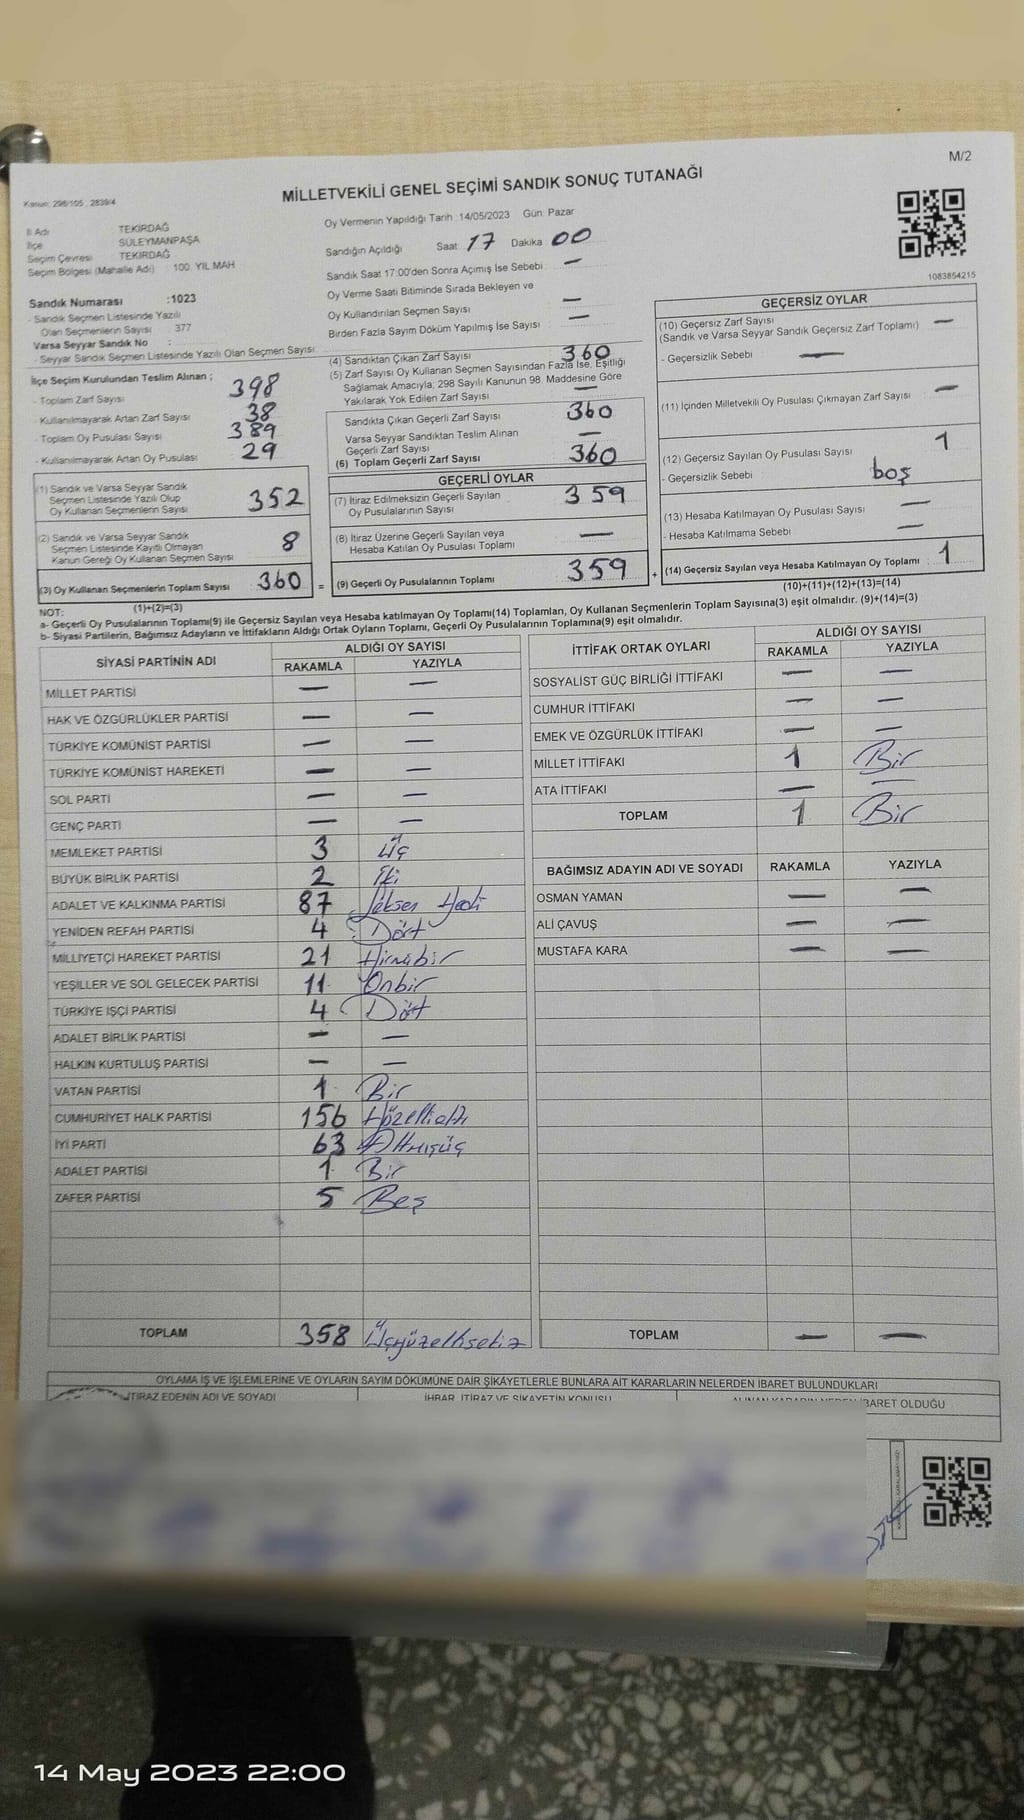 M/2
MİLLETVEKİLİ GENEL SEÇİMİ SANDIK SONUÇ TUTANAĞI
Kanun: 298/105 , 2839/4
İl Adı : TEKİRDAĞ
İlçe : SÜLEYMANPAŞA
Seçim Çevresi : TEKİRDAĞ
Seçim Bölgesi (Mahalle Adı) : 100. YIL MAH
Sandık Numarası :1023
- Sandık Seçmen Listesinde Yazılı
Olan Seçmenlerin Sayısı : 377
Varsa Seyyar Sandık No :
- Seyyar Sandık Seçmen Listesinde Yazılı Olan Seçmen Sayısı:
Oy Vermenin Yapıldığı Tarih : 14/05/2023 Gün: Pazar
Sandığın Açıldığı Saat: 17 Dakika 00
Sandık Saat 17:00'den Sonra Açımış İse Sebebi : —
Oy Verme Saati Bitiminde Sırada Bekleyen ve
Oy Kullandırılan Seçmen Sayısı : —
Birden Fazla Sayım Döküm Yapılmış İse Sayısı : —
1083854215
İlçe Seçim Kurulundan Teslim Alınan ;
- Toplam Zarf Sayısı : 398
- Kullanılmayarak Artan Zarf Sayısı : 38
- Toplam Oy Pusulası Sayısı : 389
- Kullanılmayarak Artan Oy Pusulası : 29
(1) Sandık ve Varsa Seyyar Sandık
Seçmen Listesinde Yazılı Olup
Oy Kullanan Seçmenlerin Sayısı 352
(2) Sandık ve Varsa Seyyar Sandık
Seçmen Listesinde Kayıtlı Olmayan
Kanun Gereği Oy Kullanan Seçmen Sayısı 8
(3) Oy Kullanan Seçmenlerin Toplam Sayısı 360 =
(1)+(2)=(3)
(4) Sandıktan Çıkan Zarf Sayısı 360
(5) Zarf Sayısı Oy Kullanan Seçmen Sayısından Fazla İse, Eşitliği
Sağlamak Amacıyla, 298 Sayılı Kanunun 98. Maddesine Göre
Yakılarak Yok Edilen Zarf Sayısı —
Sandıkta Çıkan Geçerli Zarf Sayısı 360
Varsa Seyyar Sandıktan Teslim Alınan
Geçerli Zarf Sayısı —
(6) Toplam Geçerli Zarf Sayısı 360
GEÇERLİ OYLAR
(7) İtiraz Edilmeksizin Geçerli Sayılan
Oy Pusulalarının Sayısı 359
(8) İtiraz Üzerine Geçerli Sayılan veya
Hesaba Katılan Oy Pusulası Toplamı —
(9) Geçerli Oy Pusulalarının Toplamı 359 +
GEÇERSİZ OYLAR
(10) Geçersiz Zarf Sayısı
(Sandık ve Varsa Seyyar Sandık Geçersiz Zarf Toplamı) —
- Geçersizlik Sebebi : —
(11) İçinden Milletvekili Oy Pusulası Çıkmayan Zarf Sayısı —
(12) Geçersiz Sayılan Oy Pusulası Sayısı 1
- Geçersizlik Sebebi : boş
(13) Hesaba Katılmayan Oy Pusulası Sayısı —
- Hesaba Katılmama Sebebi : —
(14) Geçersiz Sayılan veya Hesaba Katılmayan Oy Toplamı 1
(10)+(11)+(12)+(13)=(14)
NOT:
a- Geçerli Oy Pusulalarının Toplamı(9) ile Geçersiz Sayılan veya Hesaba katılmayan Oy Toplamı(14) Toplamları, Oy Kullanan Seçmenlerin Toplam Sayısına(3) eşit olmalıdır. (9)+(14)=(3)
b- Siyasi Partilerin, Bağımsız Adayların ve İttifakların Aldığı Ortak Oyların Toplamı, Geçerli Oy Pusulalarının Toplamına(9) eşit olmalıdır.
SİYASİ PARTİNİN ADI ALDIĞI OY SAYISI
RAKAMLA YAZIYLA
MİLLET PARTİSİ — —
HAK VE ÖZGÜRLÜKLER PARTİSİ — —
TÜRKİYE KOMÜNİST PARTİSİ — —
TÜRKİYE KOMÜNİST HAREKETİ — —
SOL PARTİ — —
GENÇ PARTİ — —
MEMLEKET PARTİSİ 3 Üç
BÜYÜK BİRLİK PARTİSİ 2 İki
ADALET VE KALKINMA PARTİSİ 87 Seksen Yedi
YENİDEN REFAH PARTİSİ 4 Dört
MİLLİYETÇİ HAREKET PARTİSİ 21 Yirmibir
YEŞİLLER VE SOL GELECEK PARTİSİ 11 Onbir
TÜRKİYE İŞÇİ PARTİSİ 4 Dört
ADALET BİRLİK PARTİSİ — —
HALKIN KURTULUŞ PARTİSİ — —
VATAN PARTİSİ 1 Bir
CUMHURİYET HALK PARTİSİ 156 Yüzellialtı
İYİ PARTİ 63 Altmışüç
ADALET PARTİSİ 1 Bir
ZAFER PARTİSİ 5 Beş
TOPLAM 358 Üçyüzellisekiz
İTTİFAK ORTAK OYLARI ALDIĞI OY SAYISI
RAKAMLA YAZIYLA
SOSYALİST GÜÇ BİRLİĞİ İTTİFAKI — —
CUMHUR İTTİFAKI — —
EMEK VE ÖZGÜRLÜK İTTİFAKI — —
MİLLET İTTİFAKI 1 Bir
ATA İTTİFAKI — —
TOPLAM 1 Bir
BAĞIMSIZ ADAYIN ADI VE SOYADI RAKAMLA YAZIYLA
OSMAN YAMAN — —
ALİ ÇAVUŞ — —
MUSTAFA KARA — —
TOPLAM — —
OYLAMA İŞ VE İŞLEMLERİNE VE OYLARIN SAYIM DÖKÜMÜNE DAİR ŞİKAYETLERLE BUNLARA AİT KARARLARIN NELERDEN İBARET BULUNDUKLARI
İTİRAZ EDENİN ADI VE SOYADI İHBAR, İTİRAZ VE ŞİKAYETİN KONUSU ALINAN KARARIN NEDEN İBARET OLDUĞU
14 May 2023 22:00